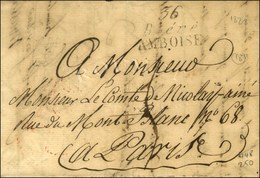 36
AMBOISE
A Monsieur
Monsieur Le Comte de Nicolaÿ-ainé
Rue du Mont Blanc No 68
A Paris